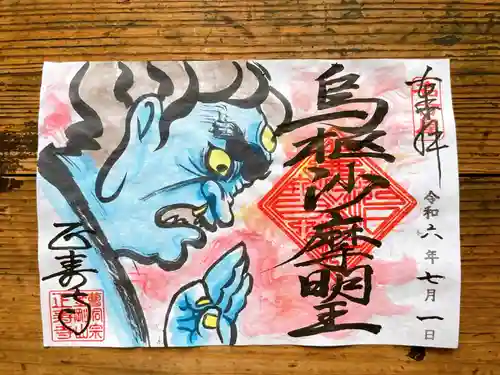 奉拝
令和六年七月一日
烏枢沙摩明王
正寿寺
曹洞宗
正寿寺